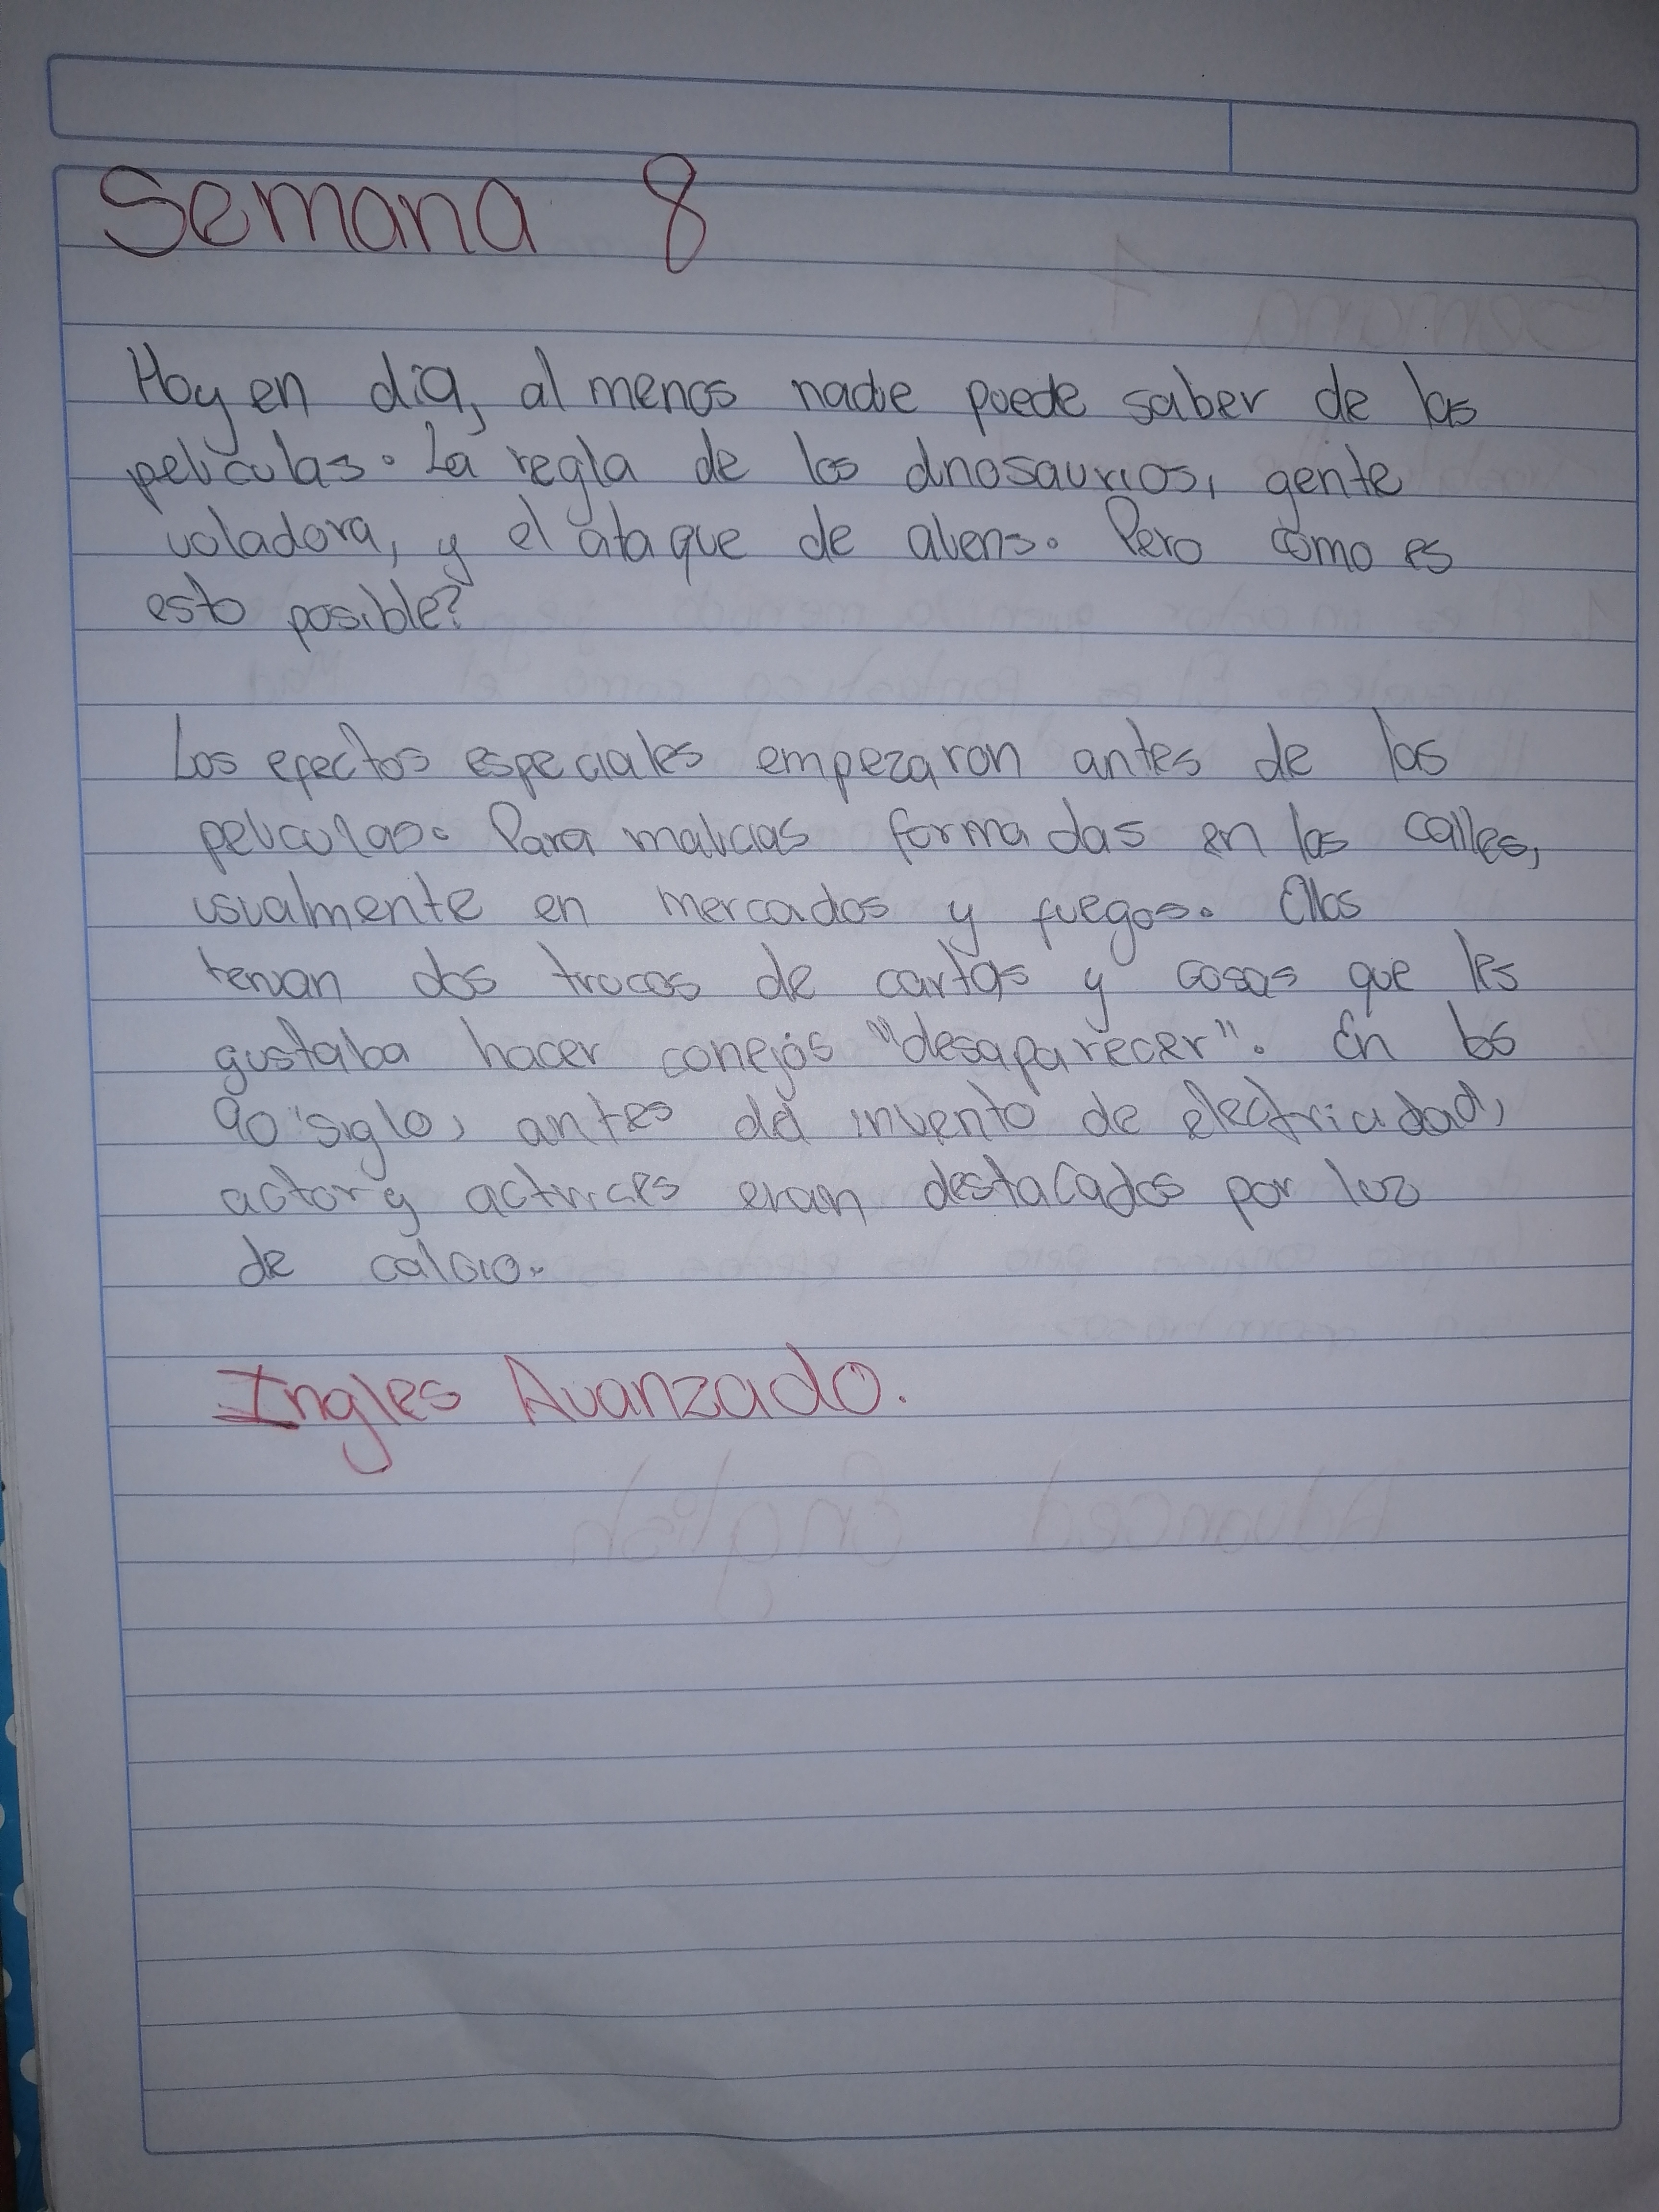 Semana 8
Hoy en dia, al menos nadie puede saber de las
peliculas. La regla de los dinosaurios, gente
voladora, y el ataque de aliens. Pero como es
esto posible?
Los efectos especiales empezaron antes de las
peliculas. Para malicias formadas en las calles,
usualmente en mercados y fuegos. Ellos
tenian dos trucos de cartas y cosas que les
gustaba hacer conejos "desaparecer". En los
90 siglo, antes del invento de electricidad,
actor y actrices eran destacados por luz
de calcio.
Ingles Avanzado.